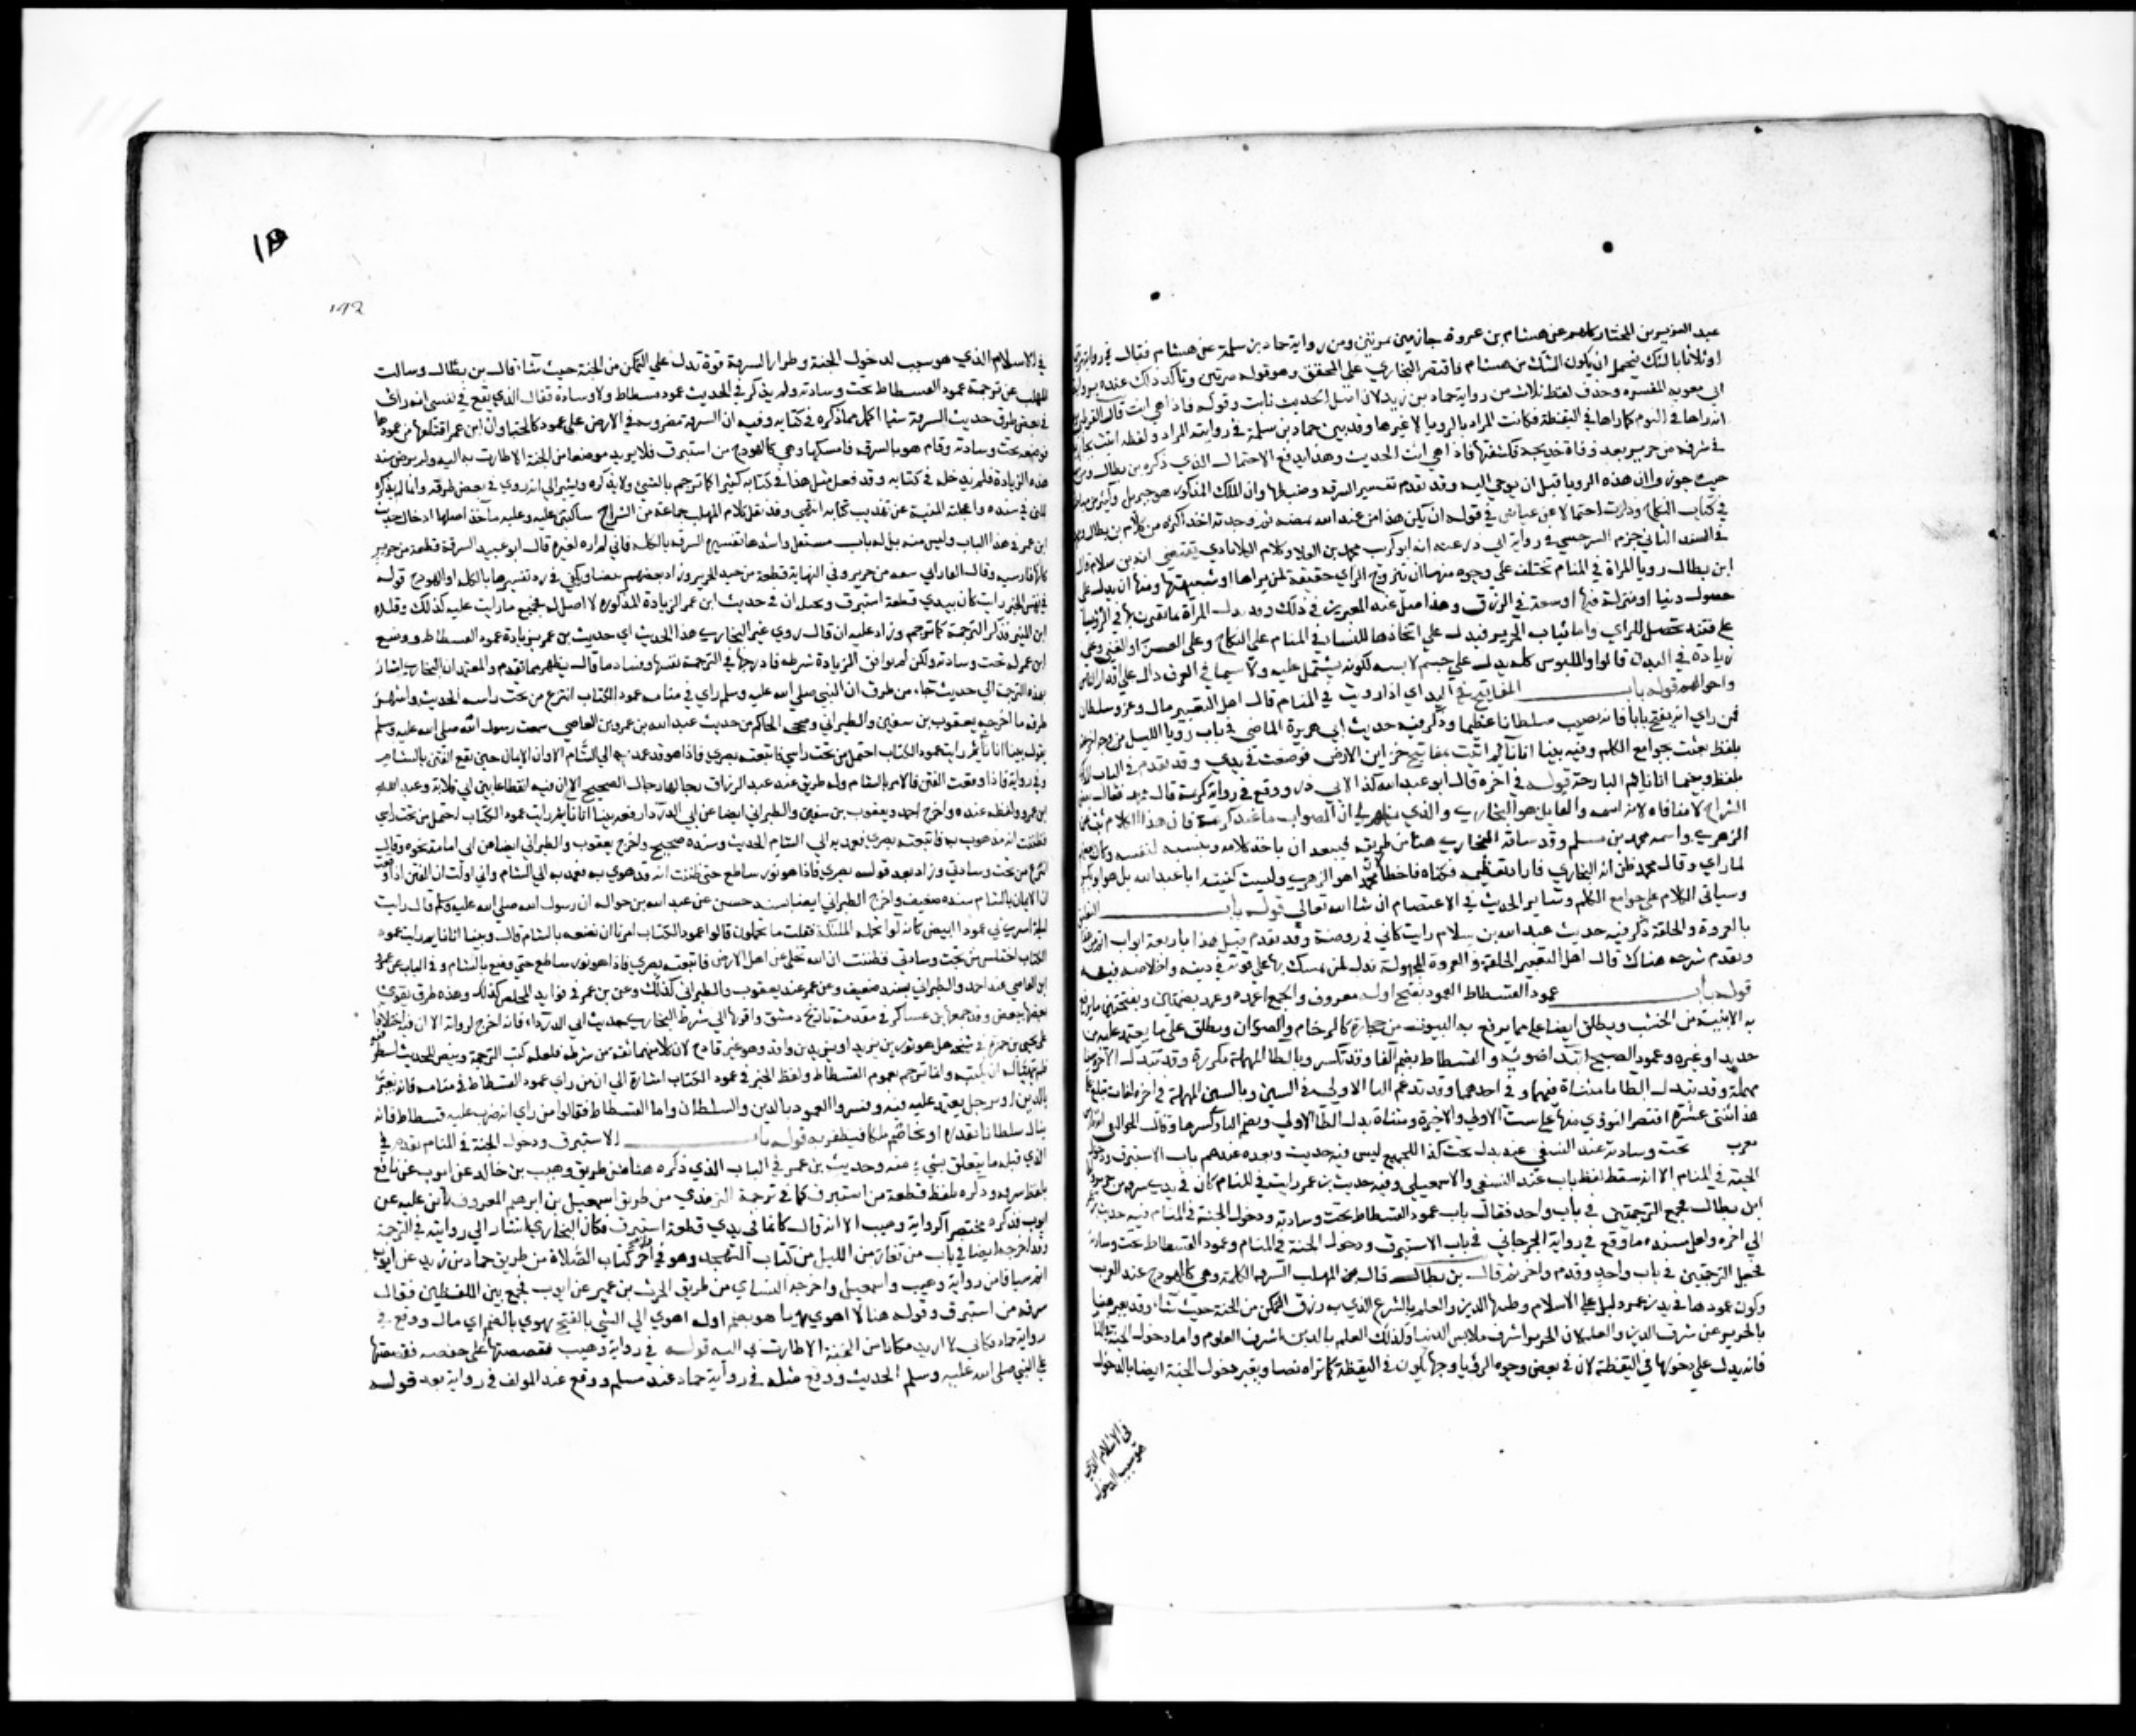 عبد العزيز بن المختار كلهم عن هشام بن عروة جازمين بمرتين ومن رواية حماد بن سلمة عن هشام فقال في روايته مرتين
او ثلاثا بالشك فيحتمل ان يكون الشك من هشام فاقتصر البخاري على المحقق وهو قوله مرتين وتأكد ذلك عنده برواية
ابي معوية المفسرة وحذف لفظ ثلاث من رواية حماد بن زيد لان اصل الحديث ثابت وقوله فاذا هي انت قال القرطبي
انه راها في النوم كما راها في اليقظة فكانت المراد بالرويا لا غيرها وقد بين حماد بن سلمة في روايته المراد ولفظه اتيت بجارية
في سرقة من حرير بعد وفاة خديجة فكشفتها فاذا هي انت الحديث وهذا يدفع الاحتمال الذي ذكره بن بطال ومن
حيث جوز ان هذه الرويا قبل ان يوحى اليه وقد تقدم تفسير السرقة وضبطها وان الملك المذكور هو جبريل وكثير من
في كتاب النكاح وذكرت احتمالا عن عياض في قوله ان يكن هذا من عند الله يمضه ثم وجدته اخذ اكثره من كلام بن بطال
في السند الثاني جزم السرخسي في رواية ابي ذر عنه انه ابو كريب محمد بن العلا وكلام الكلاباذي يقتضي انه بن سلام قال
ابن بطال رويا المراة في المنام تختلف على وجوه منها ان يتزوج الراي حقيقة لمن يراها او شبيهتها ومنها ان يدل على
حصول دنيا او منزلة فيها او سعة في الرزق وهذا اصل عند المعبرين في ذلك وقد تدل المرأة بما يقترن بها في الرؤيا
على فتنة تحصل للراي واما ثياب الحرير فيدل على اتخاذها للنساء في المنام على النكاح وعلى العسر او الغنى وعلى
زيادة في البدن قالوا والملبوس كله يدل على جسم لابسه لكونه يشتمل عليه ولا سيما في العرف دال على اقدار الناس
واحوالهم قوله باب المفاتيح في اليد اي اذا رويت في المنام قال اهل التعبير مال وعز وسلطان
فمن راي انه يفتح بابا فانه يصيب سلطانا عظيما وذكر فيه حديث ابي هريرة الماضي في باب رويا الليل من وجه اخر
بلفظ بعثت بجوامع الكلم وفيه بينا انا نائم اتيت بمفاتيح خزاين الارض فوضعت في يدي وقد تقدم في الباب
بلفظ وبينما انا نايم البارحة قوله في اخره قال ابو عبد الله كذا لابي ذر ووقع في رواية كريمة قال محمد فقال بعض
الشراح لا منافاه لانه اسمه والقايل هو البخاري والذي يظهر لي ان الصواب ما عند كريمة فان هذا الكلام ثبت عن
الزهري واسمه محمد بن مسلم وقد ساقه البخاري هنا من طريقه فيبعد ان ياخذ كلامه وينسبه لنفسه وكان بعضهم
لما راي وقال محمد ظن انه البخاري فاراد تعظيمه فكناه فاخطأ لان محمدا هو الزهري وليست كنيته ابا عبد الله بل هو ابو بكر
وسياتي الكلام على جوامع الكلم وشاير الحديث في الاعتصام ان شا الله تعالى قوله باب التعليق
بالعروة والحلقة ذكر فيه حديث عبد الله بن سلام رايت كاني في روضة وقد تقدم قبل هذا باربعة ابواب
وتقدم شرحه هناك قال اهل التعبير الحلقة والعروة المجهولة تدل لمن تمسك بها على قوته في دينه واخلاصه فيه
قوله باب عمود الفسطاط العمود بفتح اوله معروف والجمع اعمدة وعمد بضمتين وبفتحتين ما يرفع
به الابنية من الخشب ويطلق ايضا على ما يرفع به البيوت من حجارة كالرخام والصوان ويطلق على ما يعتمد عليه من
حديد او غيره وعمود الصبح ابتدا ضوئه والفسطاط بضم الفا وقد تكسر وبالطا المهملة مكررة وقد تبدل الاخيرة سينا
مهملة وقد تبدل الطا ما مثناة فيهما وفي احدهما وقد تدغم التا الاولى في السين وبالسين المهملة في اخره لغات تبلغ على
هذا اثنتي عشرة اقتصر النووي منها على ست الاولى والاخيرة ومثناة بدل الطا الاولى وبضم الفا وكسرها وقال الجواليقي
معرب تحت وسادته عند النسفي عند بدل تحت كذا للجميع ليس فيه حديث وبعده عندهم باب الاستبرق ودخول
الجنة في المنام الا انه سقط لفظ باب عند النسفي والاسمعيلي وفيه حديث بن عمر رايت في المنام كان في يدي سرقة من حرير
ابن بطال فجمع الترجمتين في باب واحد فقال باب عمود الفسطاط تحت وسادته ودخول الجنة في المنام فيه حديث
الي اخره ولعل مستنده ما وقع في رواية الجرجاني في باب الاستبرق ودخول الجنة في المنام وعمود الفسطاط تحت وسادته
فجعل الترجمتين في باب واحد وقدم واخر ثم قال بن بطال قال المهلب السرقة الكلة وهي كالهودج عند العرب
وكون عمودها في يد بن عمر دليل على الاسلام وطنبها الدين والعلم بالشرع الذي به يرزق التمكن من الجنة حيث شاء وقد يعبر هنا
بالحرير عن شرف الدين والعلم لان الحرير اشرف ملابس الدنيا وكذلك العلم بالدين اشرف العلوم واما دخول الجنة
فانه يدل على دخولها في اليقظة لان في بعض وجوه الرؤيا وجها يكون في اليقظة كما تراه نصا ويعبر دخول الجنة ايضا بالدخول
في الاسلام الذي
هو سبب الدخول
192
في الاسلام الذي هو سبب لدخول الجنة وطيران السرقة قوة تدل على التمكن من الجنة حيث شاء قال بن بطال وسالت
المهلب عن ترجمة عمود الفسطاط تحت وسادته ولم يذكر في الحديث عمود فسطاط ولا وسادة فقال الذي يقع في نفسي انه راى
في بعض طرق حديث السرقة شيا اكمل مما ذكره في كتابه وفيه ان السرقة مضروبة في الارض على عمود كالخبا وان ابن عمر اقتلعها من عمودها
فوضعه تحت وسادته وقام هو بالسرقة فامسكها وهي كالهودج من استبرق فلا يريد موضعا من الجنة الا طارت به اليه ولم يرض سند
هذه الزيادة فلم يدخله في كتابه وقد فعل مثل هذا في كتابه كثيرا كما يترجم بالشيء ولا يذكره ويشير الى انه روي في بعض طرقه وانما لم يذكره
للين في سنده واعجلته المنية عن تهذيب كتابه انتهى وقد نقل كلام المهلب جماعة من الشراح ساكتين عليه وعليه مآخذ اصلها ادخال حديث
ابن عمر في هذا الباب وليس منه بل له باب مستقل واشدها تفسيره السرقة بالكلة فاني لم اره لغيره قال ابو عبيد السرقة قطعة من حرير
كانها فارسية وقال الفارابي شقة من حرير وفي النهاية قطعة من جيد الحرير وزاد بعضهم بيضا ويكفي في رد تفسيرها بالكلة او الهودج قوله
في نفس الخبر رايت كان بيدي قطعة استبرق وتخيل ان في حديث ابن عمر الزيادة المذكورة لا اصل له فجميع ما رتب عليه كذلك وقلده
ابن المنير فذكر الترجمة كما ترجم وزاد عليه ان قال روي غير البخاري هذا الحديث اي حديث بن عمر بزيادة عمود الفسطاط ووضع
ابن عمر له تحت وسادته ولكن لم توافق الزيادة شرطه فادرجها في الترجمة نفسها وفساد ما قال يظهر مما تقدم والمعتمد ان البخاري اشار
بهذه الترجمة الي حديث جاء من طرق ان النبي صلى الله عليه وسلم راي في منامه عمود الكتاب انتزع من تحت راسه الحديث واشهر
طرقه ما اخرجه يعقوب بن سفين والطبراني وصححه الحاكم من حديث عبد الله بن عمرو بن العاصي سمعت رسول الله صلى الله عليه وسلم
يقول بينا انا نائم رايت عمود الكتاب احتمل من تحت راسي فاتبعته بصري فاذا هو قد عمد به الى الشام الا وان الايمان حين تقع الفتن بالشام
وفي رواية فاذا وقعت الفتن فالامر بالشام وله طريق عند عبد الرزاق رجالها رجال الصحيح الا ان فيه انقطاعا بين ابي قلابة وعبد الله
ابن عمرو ولفظه عنده واخرج احمد ويعقوب بن سفين والطبراني ايضا عن ابي الدرداء رفعه بينا انا نايم رايت عمود الكتاب احتمل من تحت راسي
فظننت انه مذهوب به فاتبعته بصري فعمد به الى الشام الحديث وسنده صحيح واخرج يعقوب والطبراني ايضا عن ابي امامة نحوه وقال
انتزع من تحت وسادتي وزاد بعد قوله بصري فاذا هو نور ساطع حتى ظننت انه قد هوي به فعمد به الى الشام واني اولت ان الفتن اذا وقعت
ان الايمان بالشام وسنده ضعيف واخرج الطبراني ايضا بسند حسن عن عبد الله بن حوالة ان رسول الله صلى الله عليه وسلم قال رايت
ليلة اسري بي عمودا ابيض كانه لوا تحمله الملئكة فقلت ما تحملون قالوا عمود الكتاب امرنا ان نضعه بالشام قال وبينا انا نايم رايت عمود
الكتاب اختلس من تحت وسادتي فظننت ان الله تخلى عن اهل الارض فاتبعته بصري فاذا هو نور ساطع حتى وضع بالشام وفي الباب عن عمرو
ابن العاصي عند احمد والطبراني بسند ضعيف وعن عمر عند يعقوب والطبراني كذلك وعن بن عمر في فوايد المخلص كذلك وهذه طرق يقوي
بعضها ببعض وقد جمعها بن عساكر في مقدمة تاريخ دمشق واقربها الى شرط البخاري حديث ابي الدرداء فانه اخرج لرواته الا ان فيه اختلافا
على يحيى بن حمزة في شيخه هل هو ثور بن يزيد او زيد بن واقد وهو غير قادح لان كلا منهما ثقة من شرطه فلعله كتب الترجمة وبيض للحديث لينظر
فيه فلم يتهيأ له ان يكتبه وانما ترجم بعمود الفسطاط ولفظ الخبر في عمود الكتاب اشارة الى ان من راي عمود الفسطاط في منامه فانه يعبر
بالدين او برجل يعتمد عليه فيه وفسروا العمود بالدين والسلطان واما الفسطاط فقالوا من راي انه ضرب عليه فسطاط فانه
ينال سلطانا بقدره او يخاصم ملكا فيظفر به قوله باب الاستبرق ودخول الجنة في المنام تقدم في
الذي قبله ما يتعلق بشيء منه وحديث بن عمر في الباب الذي ذكره هنا من طريق وهيب بن خالد عن ايوب عن نافع
بلفظ سرقة وذكره بلفظ قطعة من استبرق كما في ترجمة الترمذي من طريق اسمعيل بن ابرهيم المعروف بابن علية عن
ايوب فذكره مختصرا كرواية وهيب الا انه قال كانما في يدي قطعة استبرق فكان البخاري اشار الى روايته في الترجمة
وقد اخرجه ايضا في باب من تعار من الليل من كتاب التهجد وهو في اخر كتاب الصلاة من طريق حماد بن زيد عن ايوب
اتم سياقا من رواية وهيب واسمعيل واخرجه النساي من طريق الحرث بن عمير عن ايوب فجمع بين اللفظين فقال
سرقة من استبرق وقوله هنا لا اهوي بها هو بضم اوله اهوى الى الشي بالفتح يهوي بالضم اي مال ووقع في
رواية حماد فكاني لا اريد مكانا من الجنة الا طارت بي اليه قوله في رواية وهيب فقصصتها على حفصة فقصتها
على النبي صلى الله عليه وسلم الحديث ووقع مثله في رواية حماد عند مسلم ووقع عند المولف في رواية بعد قوله